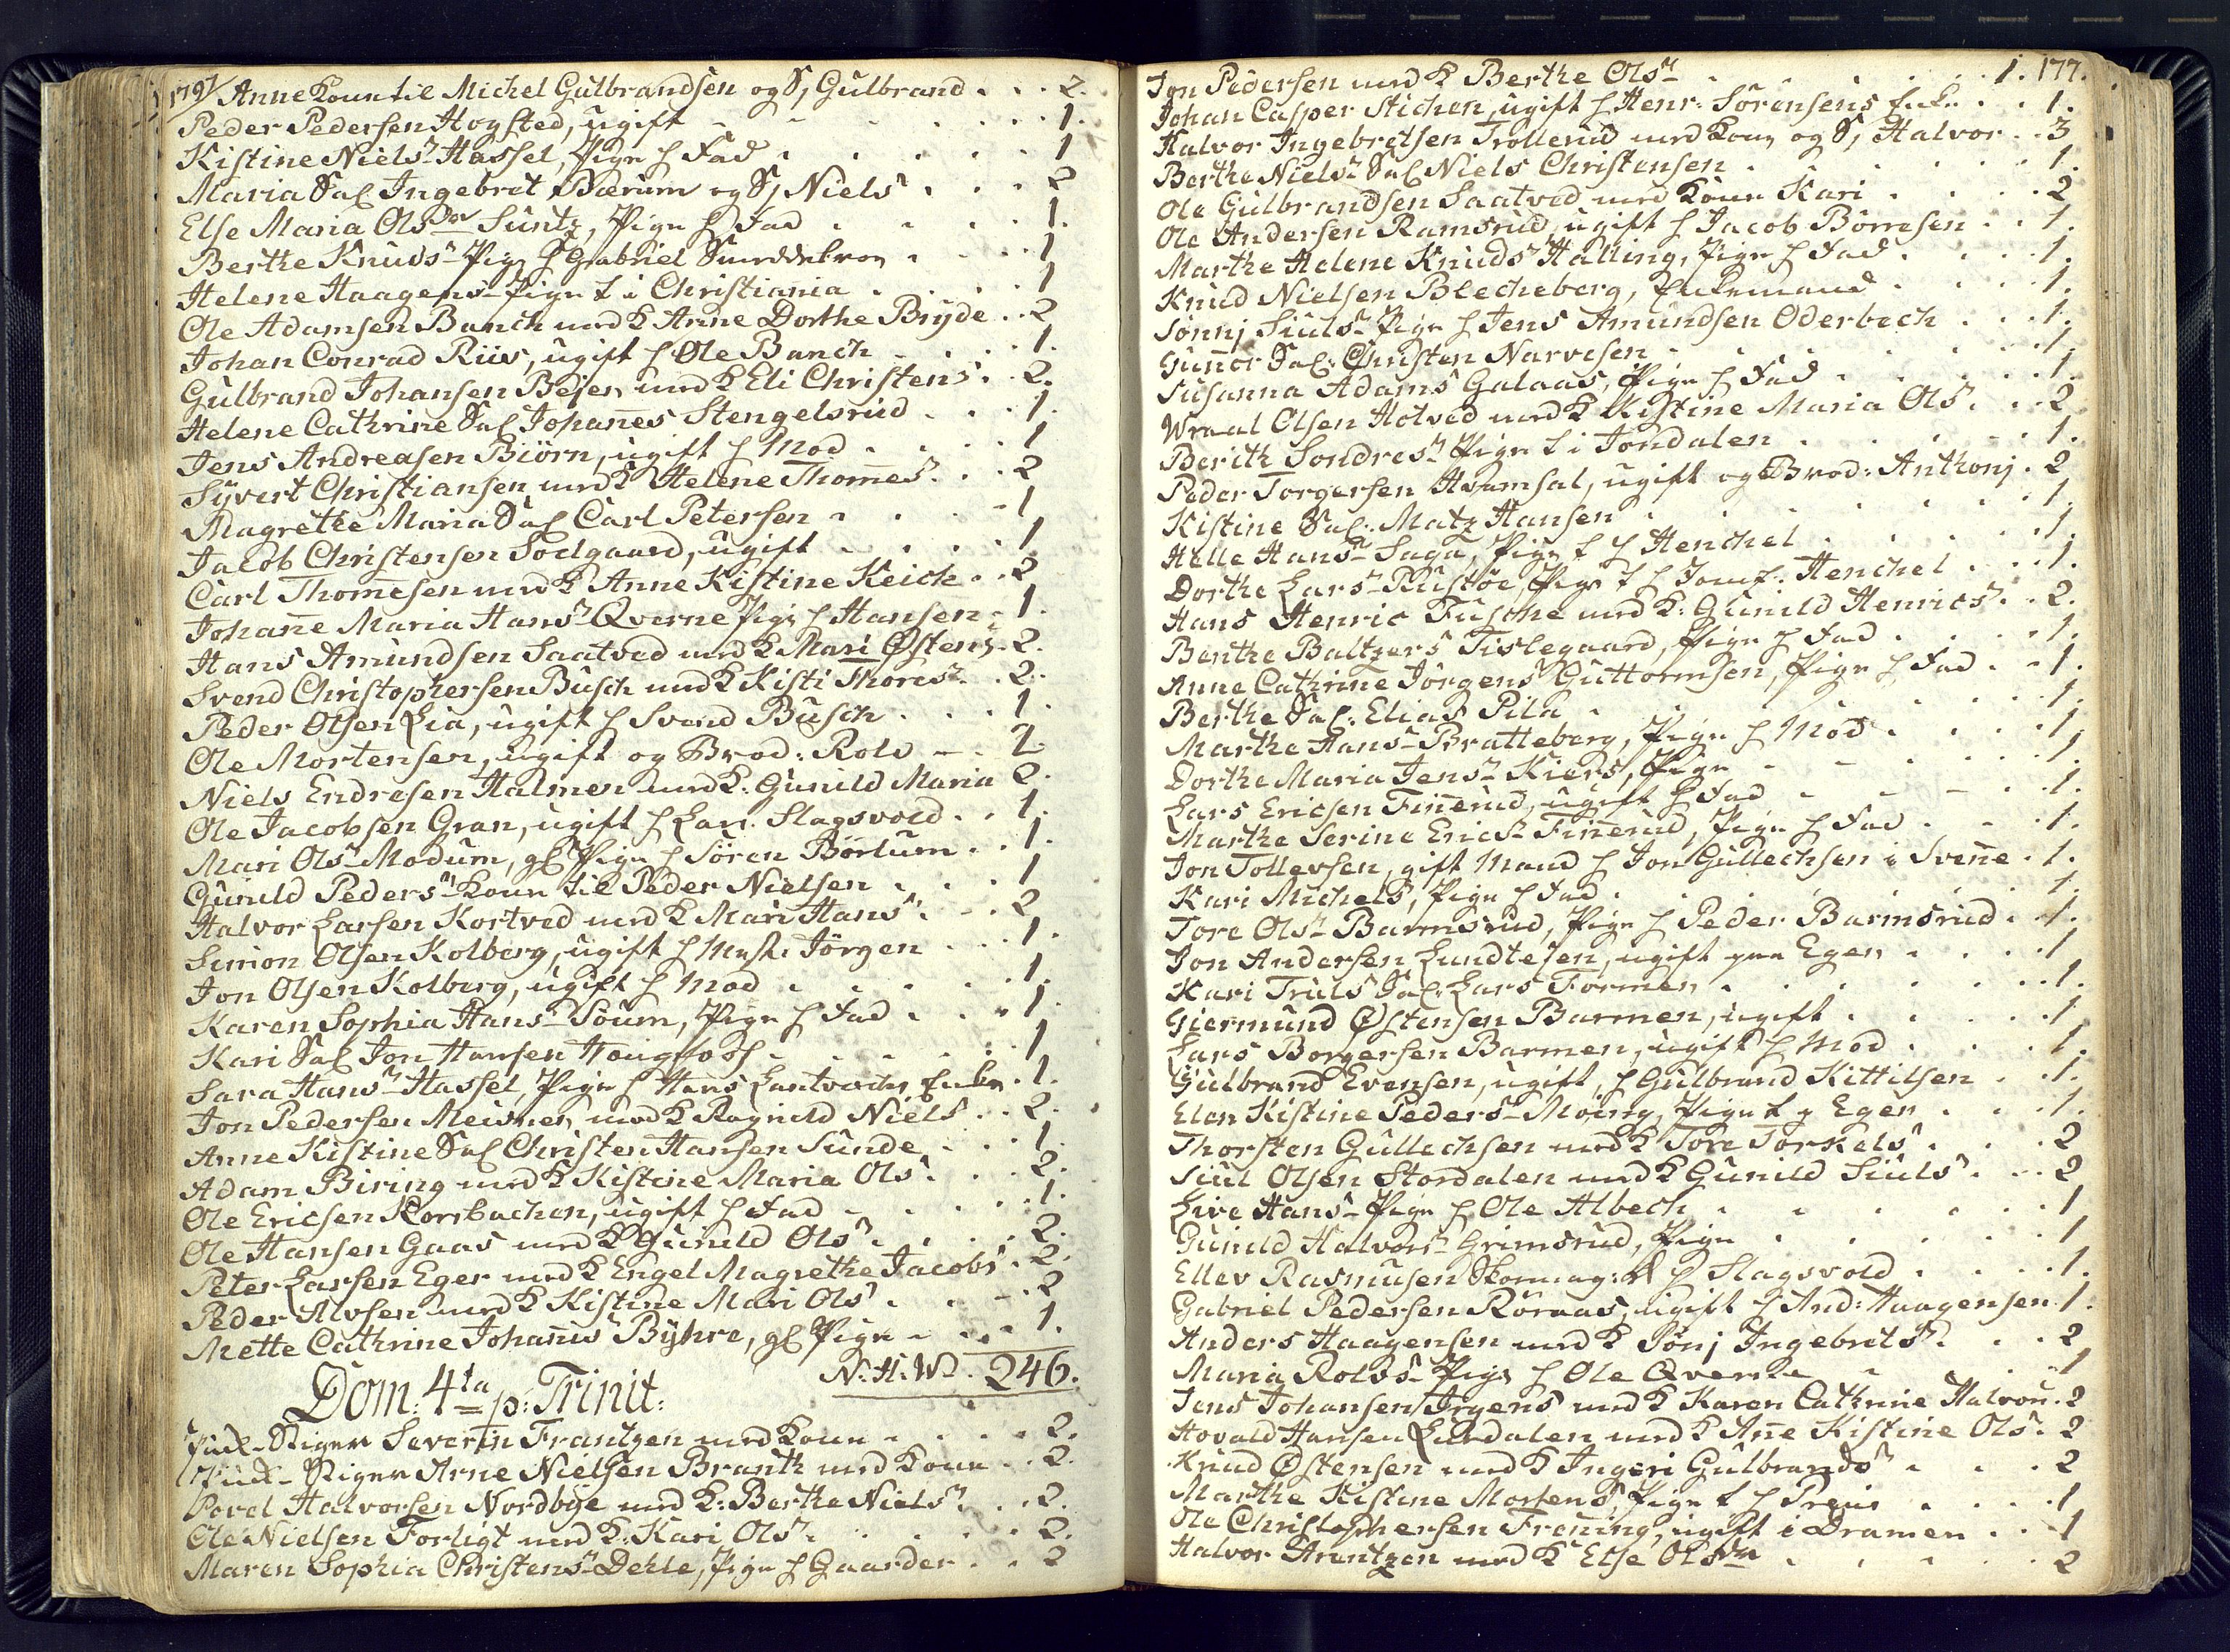 1791 Anne Konen til Michel Gulbrandsen og S, Gulbrand . . . 2.
Peder Pedersen Hogsted, ugift . . . 1.
Kistine Niels: Hassel, Pige h Fad . . . 1
Maria Sal Ingebret Bærum og S, Niels . . . 2
Else Maria Ols Dr Suntz, Pige h Fad . . . 1.
Berthe Knuds: Pige h Gabriel . . . 1
Helene Haagens: Pige t i Christiania . . . 1
Ole Adamsen Banch med K Anne Dorthe Bryde . . 2
Johan Conrad Riis, ugift h Ole Banch . . . 1.
Gulbrand Johansen Bejer med K Eli Christens: . . 2.
Helene Cathrine Sal Johañes Stengelsrud . . . 1.
Jens Andreasen Biörn, ugift h Mod . . . 1
Syvert Christiansen med K Helene Thom̃es: . . 2
Magrethe Maria Sal Carl Petersen . . . 1
Jacob Christensen Sodgaard, ugift . . . 1
Carl Thom̃esen med K Anne Kistine Keich . . 2
Johañe Maria Hans: Qverne Pige h Hansen . 1.
Hans Amundsen Saatved med K Mari Østens . 2.
Svend Christophersen Busch med K Kisti Thores: . . 2.
Peder Olsen Lia, ugift h Svend Busch . . . 1.
Ole Mortensen, ugift og Brod: Rolv . . 2
Niels Endresen Halmen med K: Gunild Maria 2.
Ole Jacobsen Gran, ugift h Lars Slagsvold . . 1.
Mari Ols: Modum, gl Pige h Sören Börlum . . 1.
Gunild Peders: Konen til Peder Nielsen . . . 1
Halvor Larsen Kortved med K Mari Hans: . . 2
Simon Olsen Kolberg, ugift h Jörgen . . . 1.
Jon Olsen Kolberg, ugift h Mod . . . 1.
Karen Sophia Hans: Soum, Pige h Fad . . . 1.
Kari Sal Jon Hansen Hougfoss . . . 1
Sara Hans: Hassel, Pige h Hans Enke . 1.
Jon Pedersen Meisner med K Ragnild Niels . . 2.
Anne Kistine Sal Christen Hansen Sunde . . . 1.
Adam Biring med K Kistine Maria Ols: . . . 2.
Ole Ericsen Korsbachen, ugift h Fad . . . 1.
Ole Hansen Gaas med K Gunild Ols: . . . 2.
Peter Larsen Eger med K Engel Magrethe Jacobs . 2.
Peder Alvsen med K Kistine Mari Ols: . . . 2
Mette Cathrine Johañis Byhre, gl Pige . . . 1.
N. H. Wd. 246.
Dom: 4ta p: Trinit:
Stiger Severin Frantzen med Kone . . . 2.
Stiger Arne Nielsen Branth med Kone . . 2.
Povel Halvorsen Nordbye med K: Berthe Niels: . . . 2.
Ole Nielsen Forligt med K: Kari Ols: . . . 2.
Maren Sophia Christens: Dehle, Pige h Gaarder . . 2
177.
Jon Pedersen med K Berthe Ols: . . . 1.
Johan Casper Stichen, ugift h Henr: Sörensens Enke . . 1.
Halvor Ingebretsen Trollerud med Kone og S, Halvor . . 3
Berthe Niels: Sal Niels Christensen . . . 1.
Ole Gulbrandsen Saatved med Konen Kari . . . 2
Ole Andersen Ramsrud, ugift h Jacob Börresen . . 1.
Marthe Helene Knuds: Halling, Pige h Fad . . . 1.
Knud Nielsen Blecheberg, Enkemand . . . 1.
Sönnj Siuls: Pige h Jens Amundsen Oderbech . . . 1.
Guñor Sal: Christen Narvesen . . . 1.
Susanna Adams: Galaas, Pige h Fad . . . 1.
Wraal Olsen Hotved med K Kistine Maria Ols: . . 2
Berith Sondres: Pige t i Jondalen . . . 1.
Peder Torgersen Hvamsal, ugift og Brod: Anthonj . 2
Kistine Sal: Matz Hansen . . . 1.
Helle Hans: Saga, Pige t h Henchel . . . 1.
Dorthe Lars: Rustöe, Pige t h Jomf: Henchel . . . 1.
Hans Henric Fusche med K: Gunild Henrics: . . 2.
Benthe Baltzers: Tislegaard, Pige h Fad . . . 1.
Anne Cathrine Jörgens: Guttormsen, Pige h Fad . . 1.
Berthe Sal: Elias Pila . . . 1.
Marthe Hans: Bratteberg, Pige h Mod . . . 1.
Dorthe Maria Jens: Kiers, Pige . . . 1.
Lars Ericsen Fiñerud, ugift h Fad . . . 1.
Marthe Serine Erics: Fiñerud, Pige h Fad . . . 1.
Jon Tollevsen, gift Mand h Jon Gullechsen i Sveñe . 1.
Kari Michels, Pige h Fad . . . 1.
Tore Ols: Barmsrud, Pige h Peder Barmsrud . . 1.
Jon Andersen Lundtesen, ugift Eger . . . 1
Kari Truls: Sal: Lars Formen . . . 1.
Giermund Østensen Barmen, ugift . . . 1
Lars Borgersen Barmen, ugift h Mod . . . 1.
Gulbrand Evensen, ugift, h Gulbrand Kittilsen . . 1.
Elen Kistine Peders: Moing, Pige t Eger . . . 1.
Thorsten Gullechsen med K Tore Torkels: . . . 2
Siul Olsen Stordalen med K Gunild Siuls: . . . 2
Live Hans: Pige h Ole Albech . . . 1
Gunild Halvors: Grimsrud, Pige . . . 1
Ellev Rasmusen Skomag: h Slagsvold . . . 1.
Gabriel Pedersen Röraas, ugift h And: Haagensen . 1.
Anders Haagensen med K Sönj Ingebrets: . . . 2
Maria Rolvs: Pige h Ole Qverne . . . 1
Jens Johansen Irgens med K Karen Cathrine Halvors . 2
Hovald Hansen Lurdalen med K Añe Kistine Ols: . 2
Knud Østensen med K Ingeri Gulbrands: . . . 2
Marthe Kistine Mortens, Pige t h Preus . . . 1
Ole Christophersen Froñing, ugift i Dramen . . . 1
Halvor Arentzen med K Else Ols Dr . . . 2